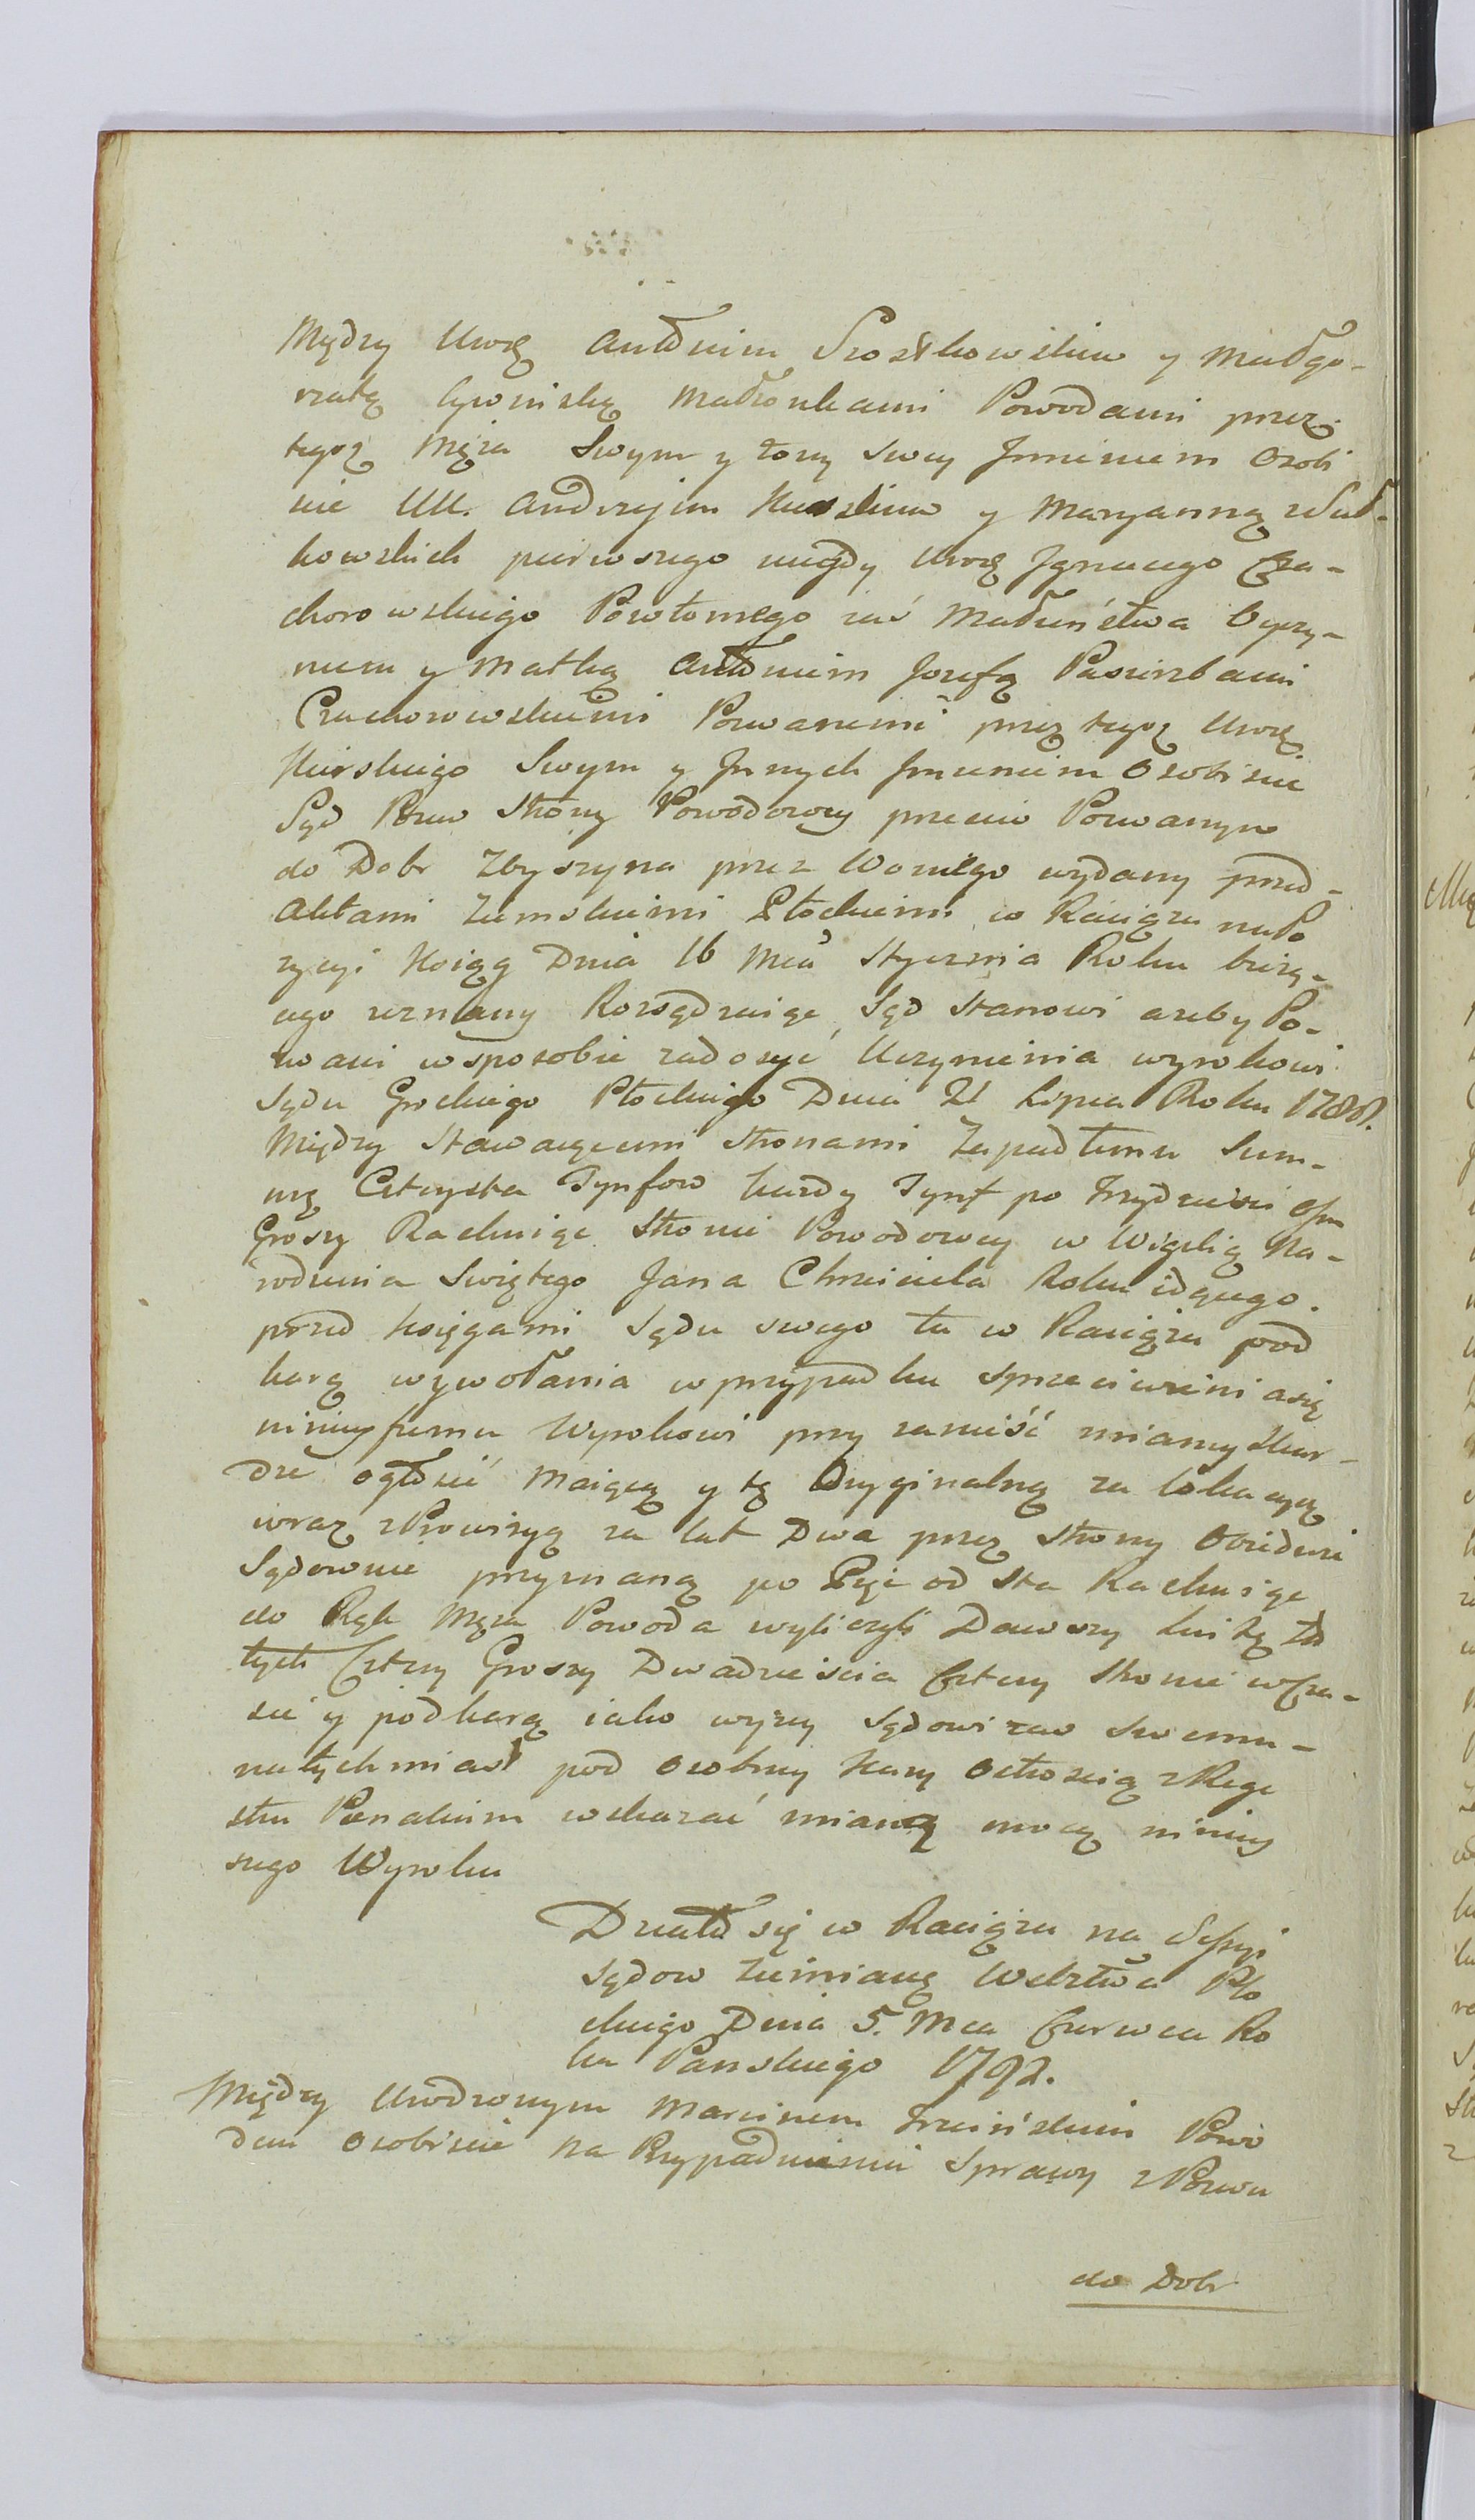 Między Uroz Antonim Szostkowskim y Małgo-
rzatą Małżonkami Powodami przez
tegoż Męża Swym y żony swey Jmieniem Osobi
scie UU. Andrzejem y Maryanną z Sul-
kowskich pierwszego niegdy Uroz Jgnacego Cza-
chorowskiego Powtornego zaś Małżeństwa Oyczy-
mem y Matką Antonim Jozefą Pasierbami
Czachorowskiemi Pozwanemi przez tegoż Uroz
Swym y Jnnych Jmieniem Osobiscie
Sąd Pozew Strony Powodowey przeciw Pozwanym
do Dobr Zbyszyna przez Woznego wydany przed
Aktami Ziemskiemi Płockiemi w Raciążu na Po
zycyi Ksiąg Dnia 16 Mca Stycznia Roku bieżą-
cego zeznany Rozsądzaiąc Sąd Stanowi azeby Po-
zwani wsposobie zadosyć Uczynienia wyrokowi
Sądu Grodzkiego Płockiego Dnia 21 Lipca Roku 1788.
Między Stawaiącemi Stronami Zapadłemu Sum-
mę Czterysta Tynfow każdy Tynf po trzydziesci Osm
Groszy Rachuiąc Stronie Powodowey w Wigilią Na-
rodzenia Swiętego Jana Chrzciciela Roku idącego.
przed księgami Sądu swego tu w Raciążu pod
karą wywołania wprzypadku sprzeciwieniasię
ninieyszemu Wyrokowi przy zanieść
ogłosić Maiącą y tę Oryginalną za lokacyą
wraz z Prowizyą za lat Dwa przez Strony Obiedwie
Sądownie przyznaną po Pięć od Sta Rachuiąc
do Rąk Męża Powoda wyliczyli Dawszy Zło
tych Cztery Groszy Dwadziescia Cztery Stronie wCza-
sie y podkarą iako wyżey Sądowi zas swemu-
natychmiast pod Osobney kary Ostrością z Rege
stru Pænalium wskazać mianą mocą niniey
szego Wyroku
Działo się w Raciążu na Sessyi
Sądow Ziemianę Wdztwa Pło
ckiego Dnia 5. Mca Czerwca Ro
ku Panskiego 1792.
Między Urodzonym Marcinem Trzcińskim Powo
dem Osobiscie na Przypadnieniu Sprawy z Pozwu
do Dobr